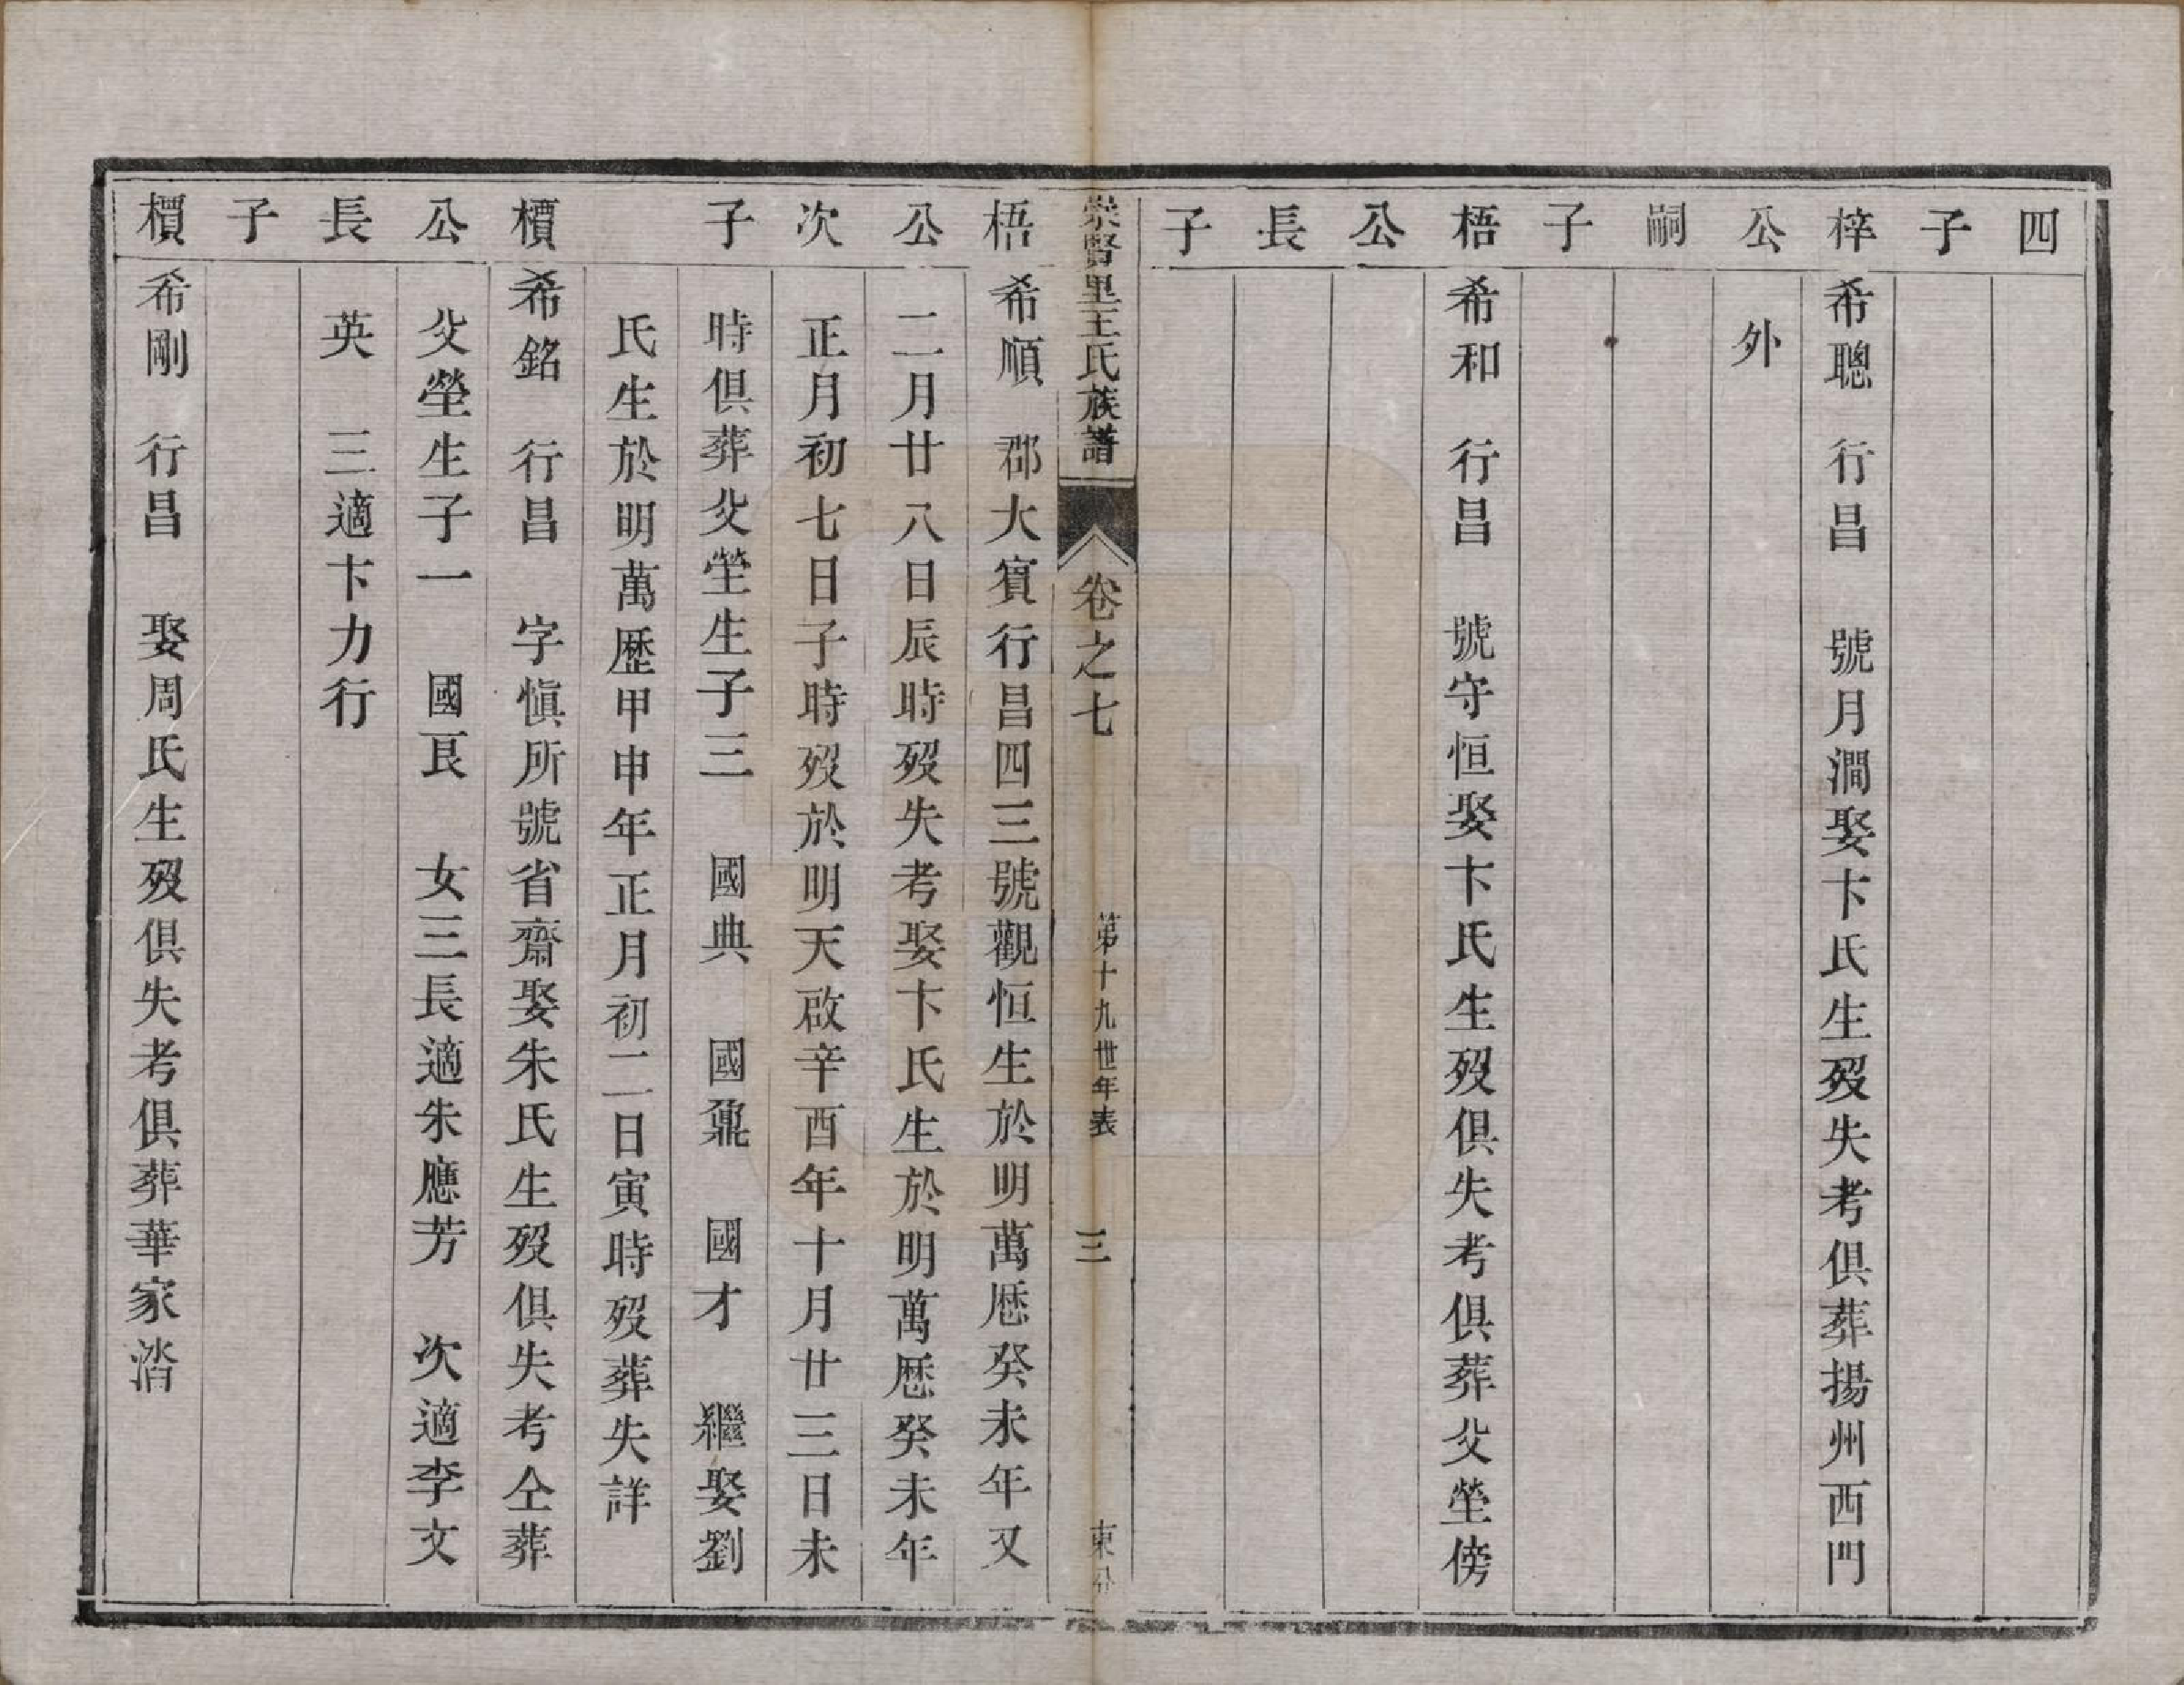 四
子
梓　希聰　行昌　號月澗娶卞氏生歿失考俱葬揚州西門
公　外
嗣
子
梧　希和　行昌　號守恒娶卞氏生歿俱失考俱葬父塋傍
公
長
子
崇賢里王氏族譜　卷之七　第十九世年表　三　東分
梧　希順　郡大賓行昌四三號觀恒生於明萬歷癸未年又
公　二月廿八日辰時歿失考娶卞氏生於明萬歷癸未年
次　正月初七日子時歿於明天啟辛酉年十月廿三日未
子　時俱葬父塋生子三　國典　國鼐　國才　繼娶劉
氏生於明萬歷甲申年正月初二日寅時歿葬失詳
檟　希銘　行昌　字愼所號省齋娶朱氏生歿俱失考仝葬
公　父塋生子一　國艮　女三長適朱應芳　次適李文
長　英　三適卞力行
子
檟　希剛　行昌　娶周氏生歿俱失考俱葬華家涾